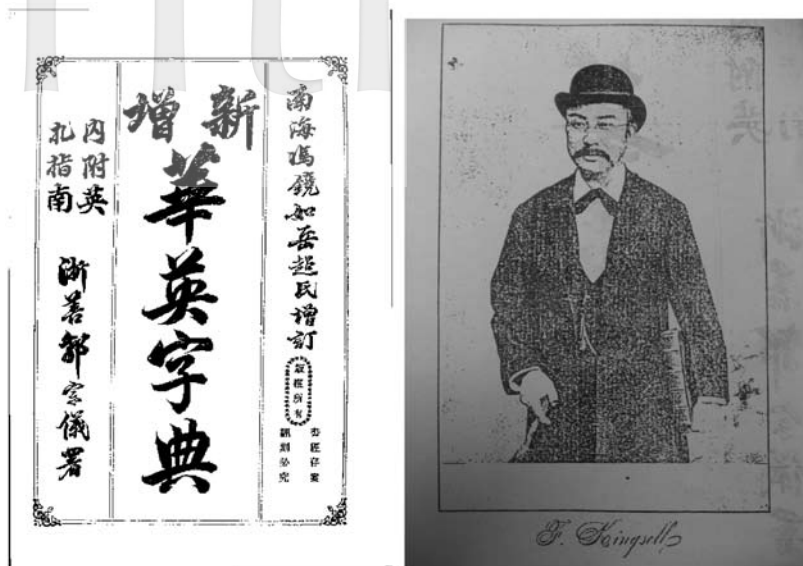 南海馮鏡如岳超民增訂
版權所有
書經存案
翻刻必究
新增
華英字典
內附英
札指南
儀署
F. Kingsell